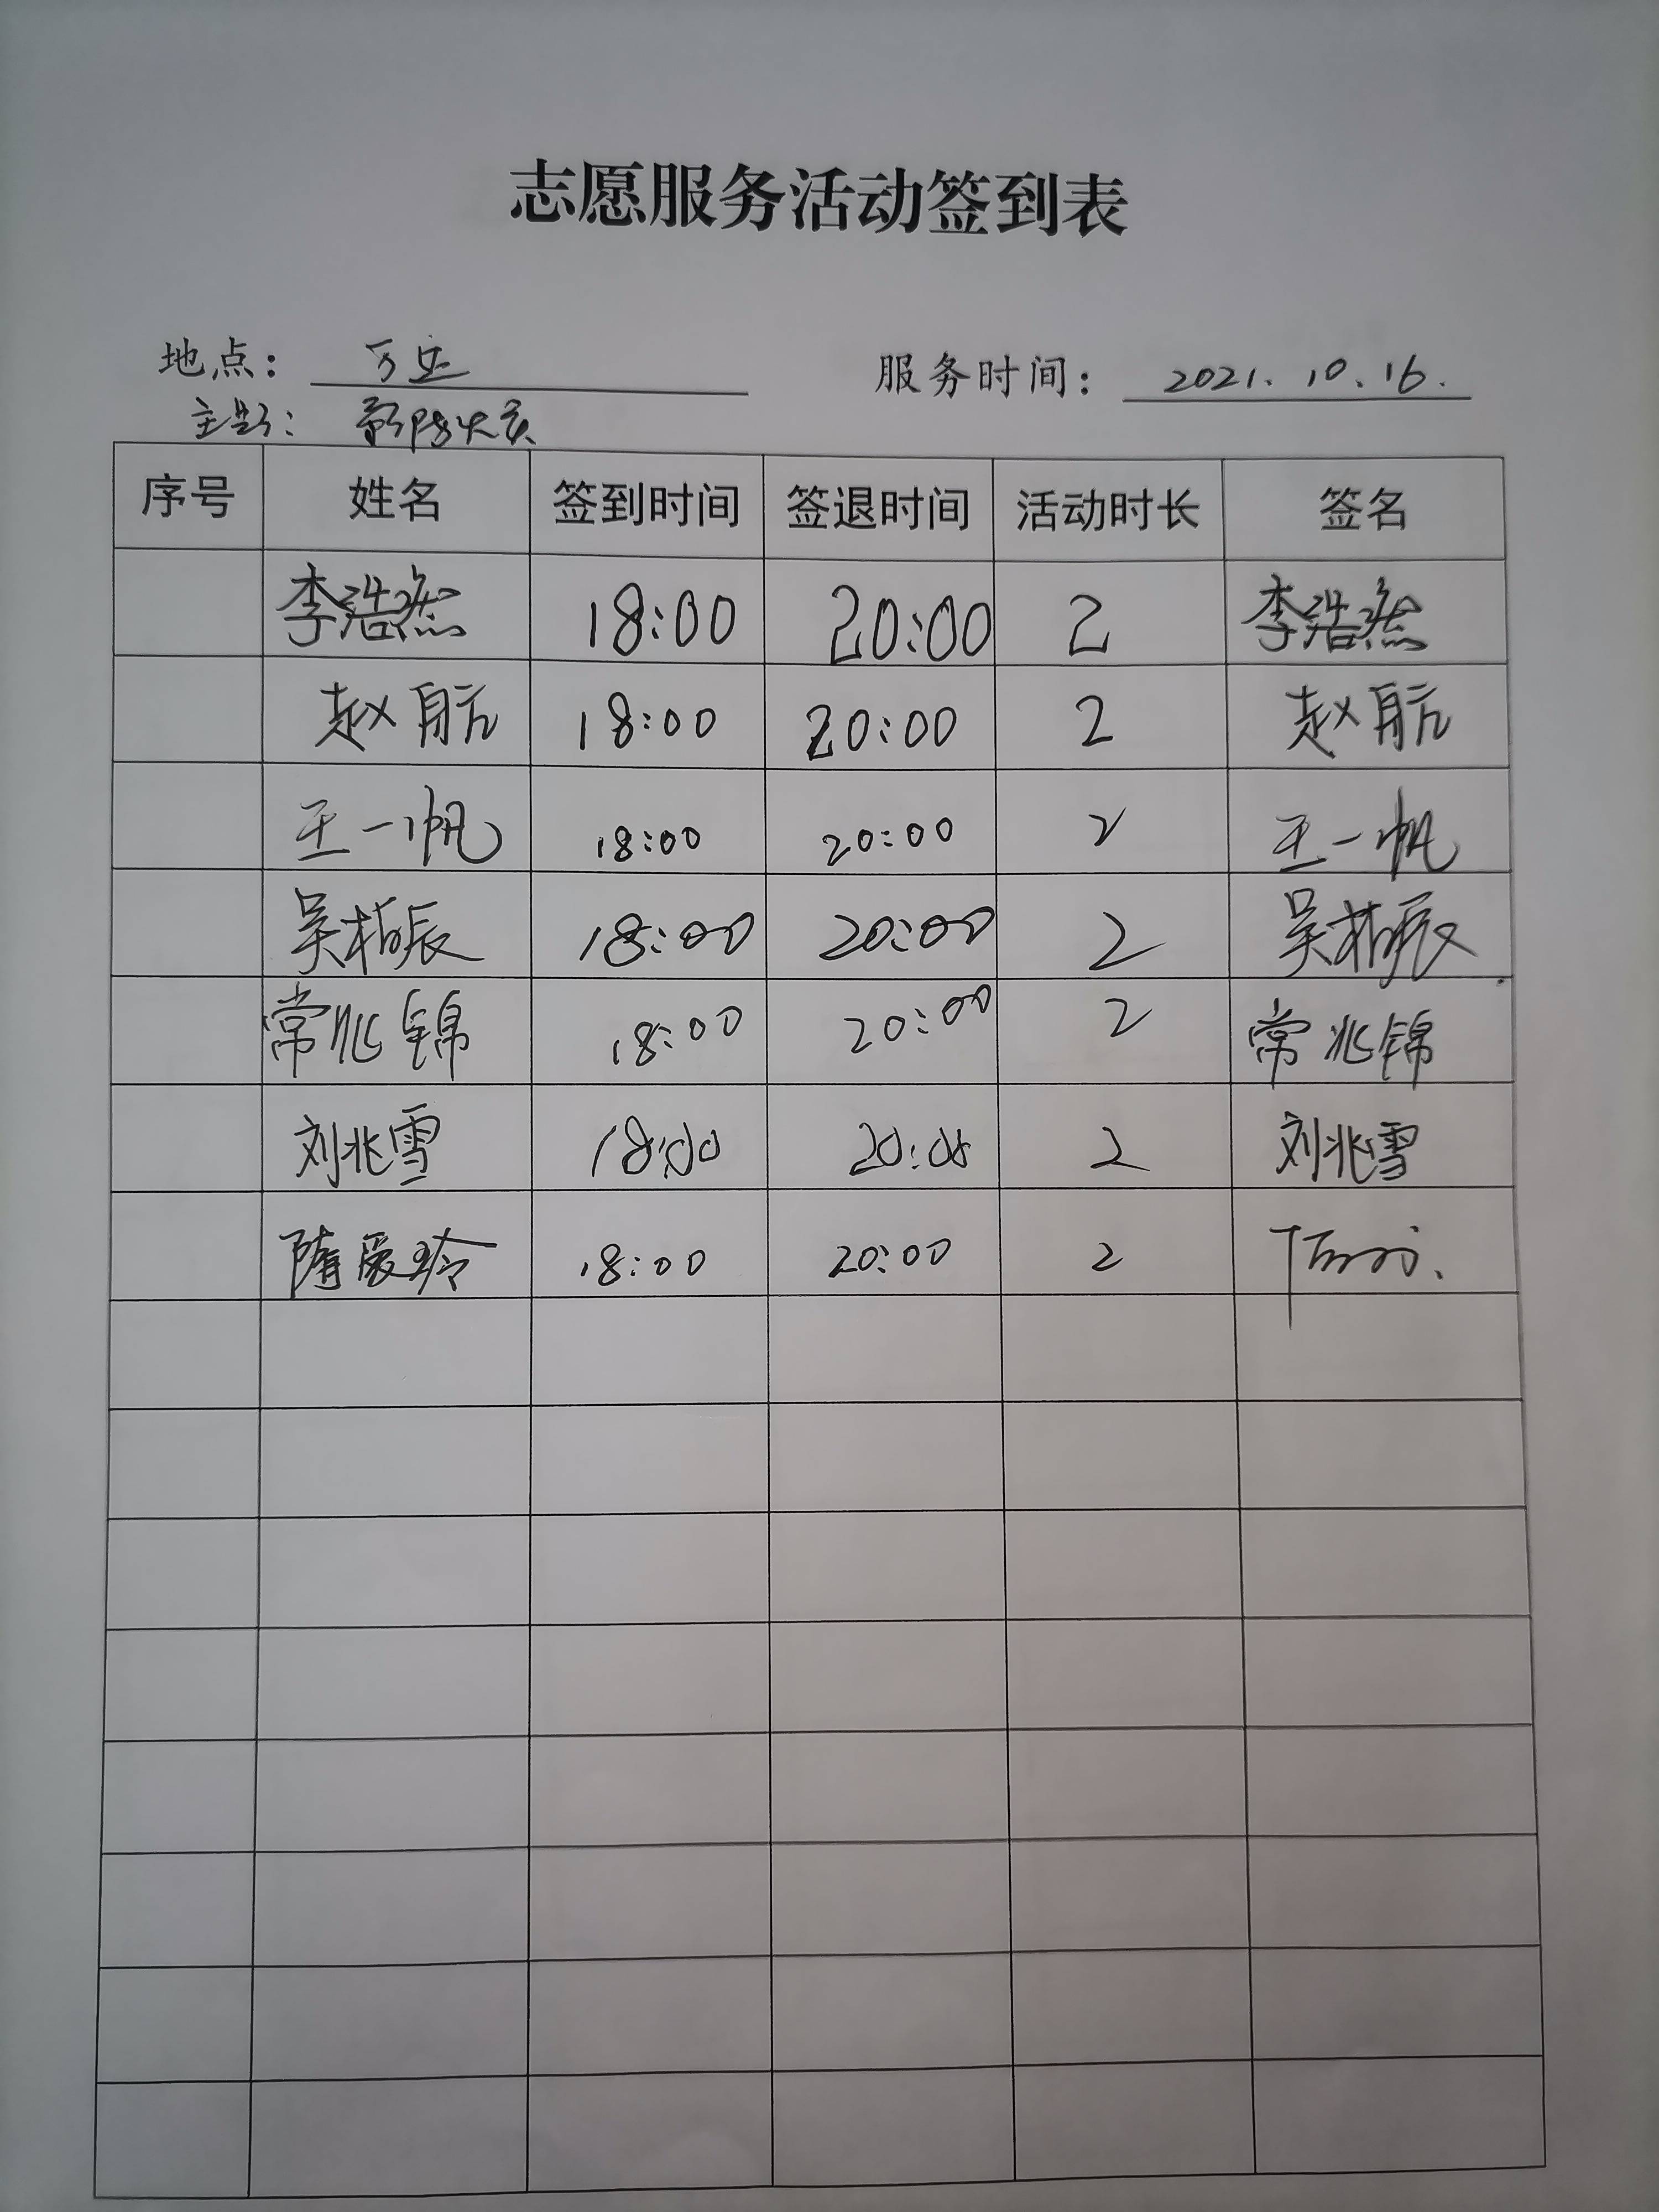 志愿服务活动签到表
地点： 万达 服务时间： 2021.10.16.
主题：
序号 姓名 签到时间 签退时间 活动时长 签名
李浩然 18:00 20:00 2 李浩然
赵航 18:00 20:00 2 赵航
王一帆 18:00 20:00 2 王一帆
吴柏辰 18:00 20:00 2 吴柏辰
常兆锦 18:00 20:00 2 常兆锦
刘兆雪 18:00 20:00 2 刘兆雪
隋爱玲 18:00 20:00 2